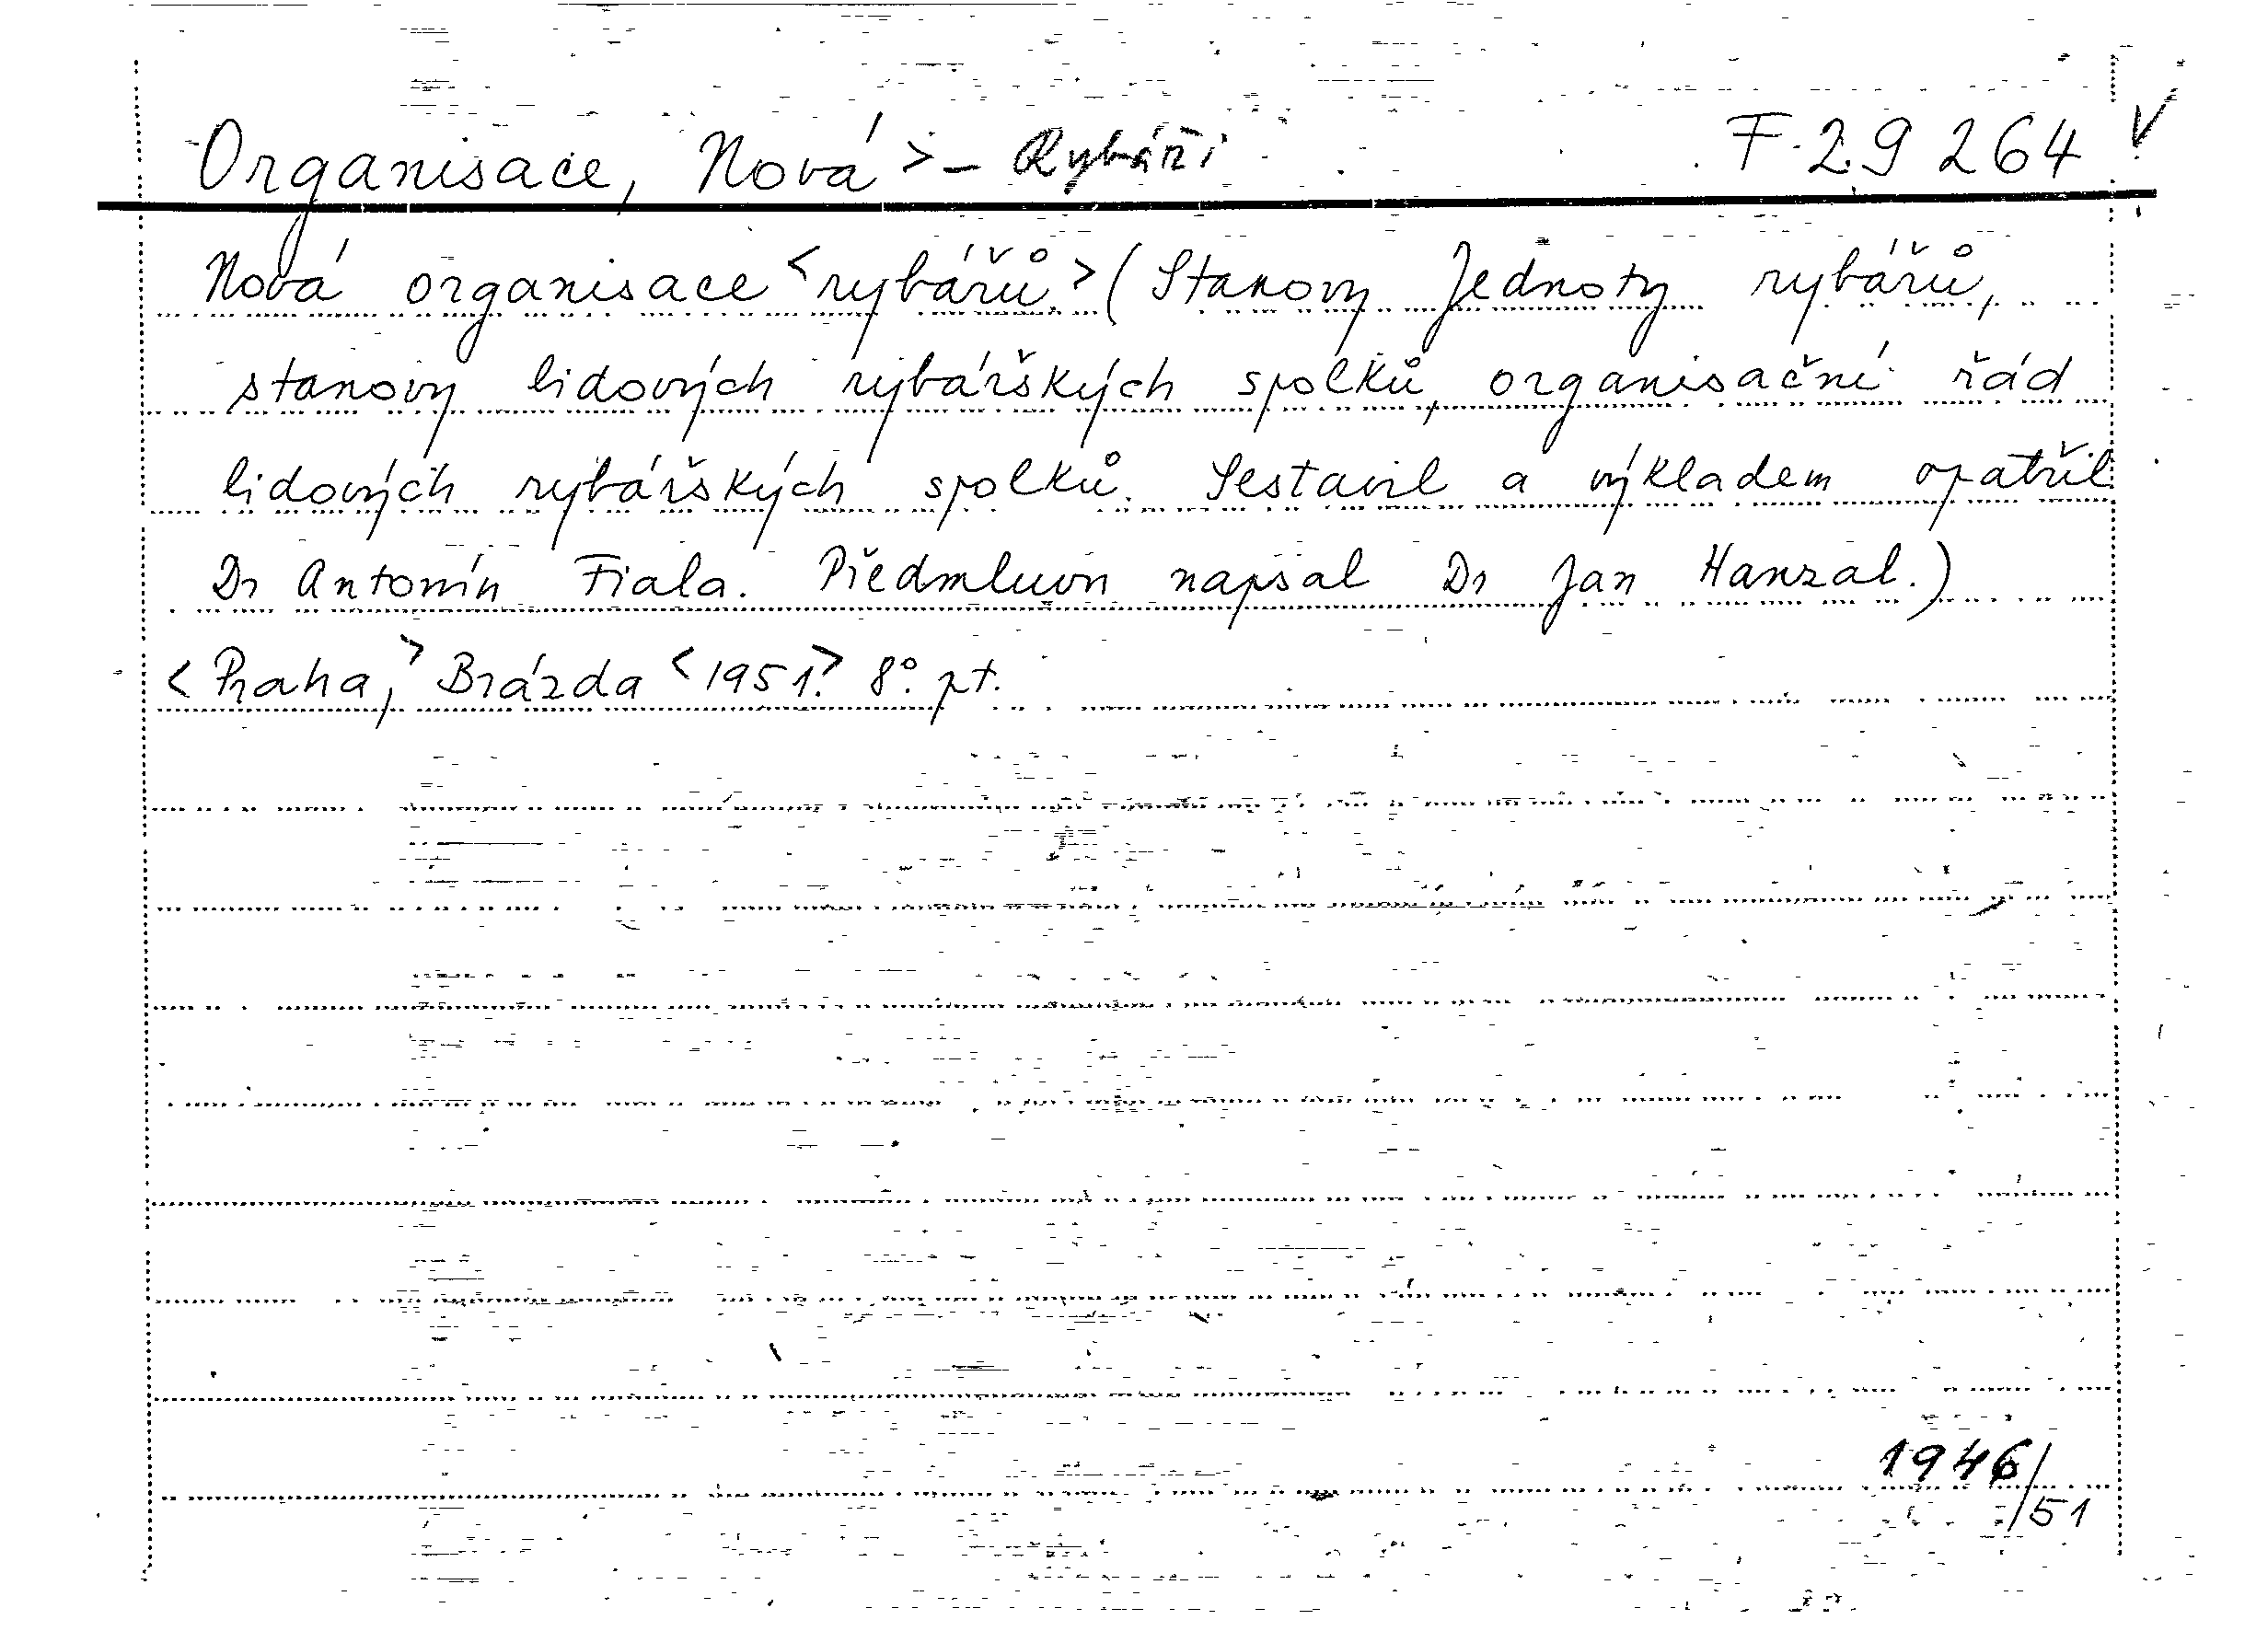 Organisace, Nová > - Rybáři F 29 264 V
Nová organisace <rybářů.> (Stanovy Jednoty rybářů,
stanovy lidových rybářských spolků, organisační řád
lidových rybářských spolků. Sestavil a výkladem opatřil
Dr Antonín Fiala. Předmluvn napsal Dr Jan Hanzal.)
<Praha,> Brázda <1951.> 8°. pt.
1946/
/51